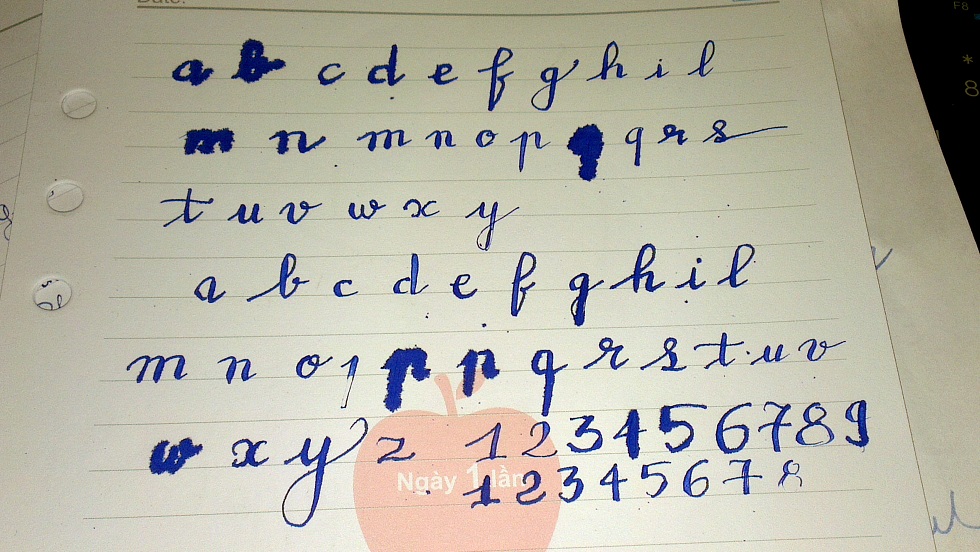 Date:
a b c d e f g h i l
m n m n o p q q r s
t u v w x y
a b c d e f g h i l
m n o p p q r s t u v
w x y z 1 2 3 4 5 6 7 8 9
Ngày 1 lần
1 2 3 4 5 6 7 8
F8
*
8